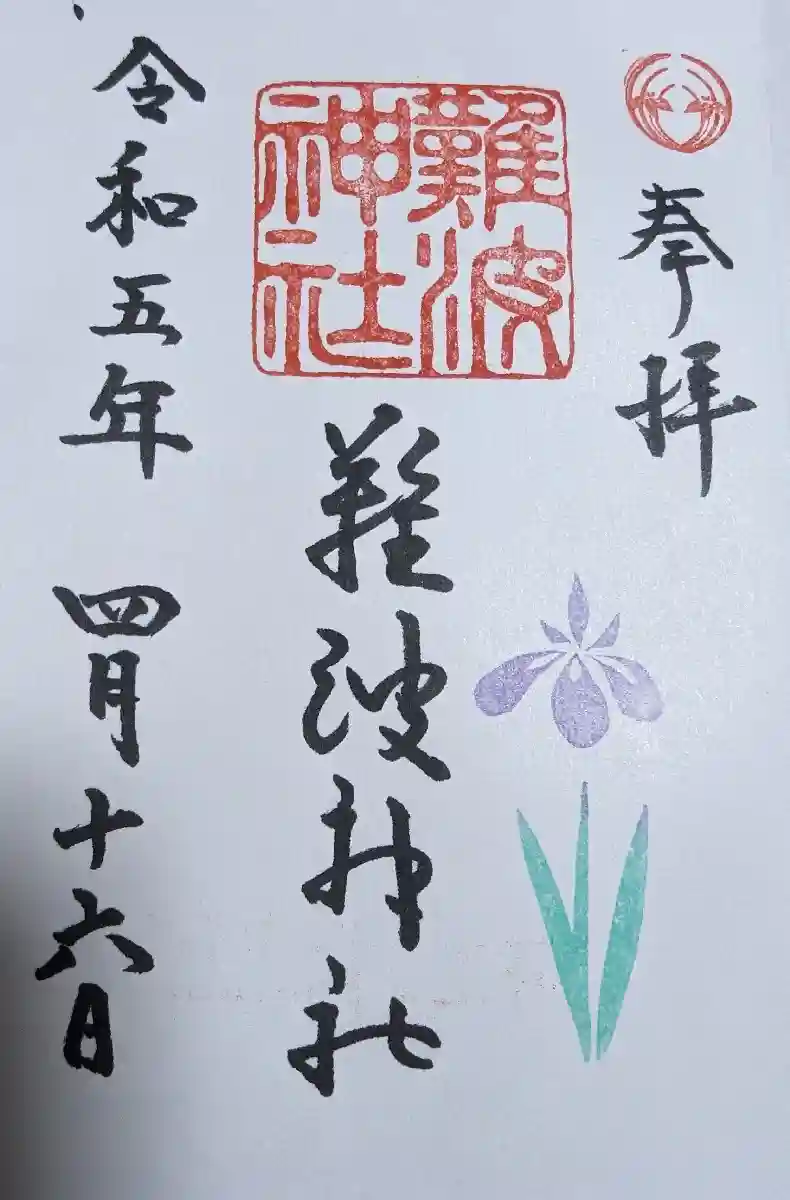 奉拝
難波神社
難波神社
令和五年 四月十六日